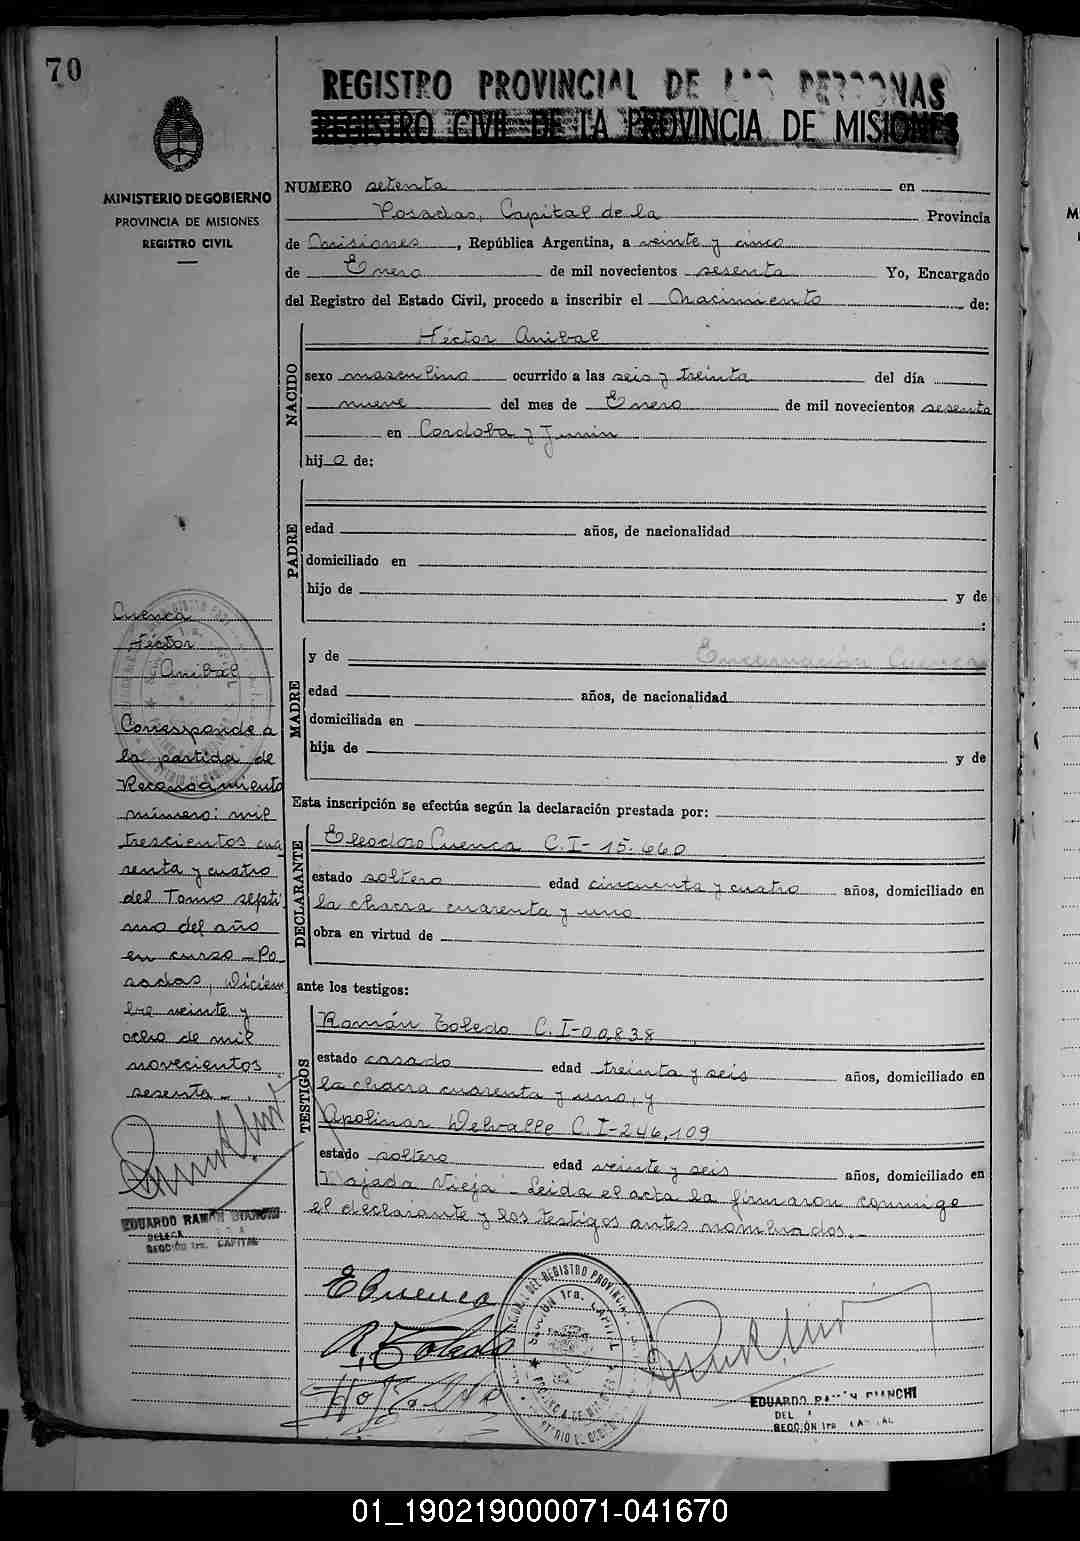 70
REGISTRO PROVINCIAL DE LAS PERSONAS
REGISTRO CIVIL DE LA PROVINCIA DE MISIONES
MINISTERIO DE GOBIERNO
PROVINCIA DE MISIONES
REGISTRO CIVIL
NUMERO setenta en
Posadas, Capital de la Provincia
de Misiones, República Argentina, a veinte y cinco
de Enero de mil novecientos sesenta Yo, Encargado
del Registro del Estado Civil, procedo a inscribir el Nacimiento de:
NACIDO
Héctor Anibal
sexo masculino ocurrido a las seis y treinta del día
nueve del mes de Enero de mil novecientos sesenta
en Cordoba y Junin
hijo de:
PADRE
edad años, de nacionalidad
domiciliado en
hijo de y de
:
MADRE
y de Encarnación Cuenca
edad años, de nacionalidad
domiciliada en
hija de y de
Esta inscripción se efectúa según la declaración prestada por:
DECLARANTE
Eleodoro Cuenca C.I- 15.660
estado soltero edad cincuenta y cuatro años, domiciliado en
la chacra cuarenta y uno
obra en virtud de
ante los testigos:
TESTIGOS
Román Toledo C.I-00838
estado casado edad treinta y seis años, domiciliado en
la chacra cuarenta y uno, y
Apolinar Delvalle C.I-246,109
estado soltero edad veinte y seis años, domiciliado en
Bajada Vieja - Leida el acta la firmaron conmigo
el declarante y los testigos antes nombrados.-
Cuenca
Héctor
Anibal
Corresponde a
la partida de
Reconocimiento
número: mil
trescientos cua
renta y cuatro
del Tomo septi
mo del año
en curso - Po
sadas, Diciem
bre veinte y
ocho de mil
novecientos
sesenta - .
EDUARDO RAMÓN BIANCHI
DELEGA
SECCIÓN 1ra. CAPITAL
ECuenca
R. Toledo
DEL REGISTRO PROVINCIAL
SECCIÓN 1ra. CAPITAL
PROVINCIA DE MISIONES
EDUARDO RAMÓN BIANCHI
DEL A
SECCIÓN 1ra CAPITAL
01_190219000071-041670